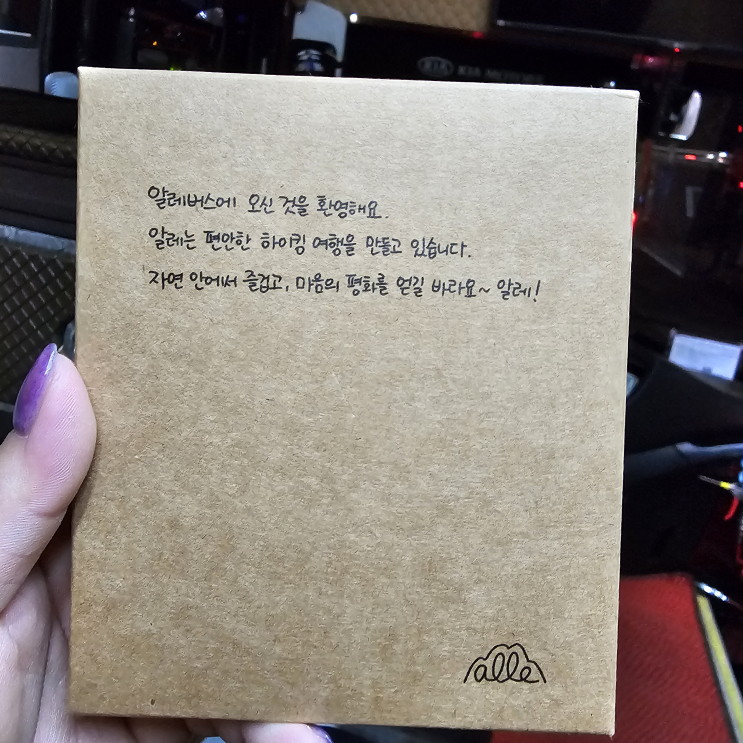 알레버스에 오신 것을 환영해요.
알레는 편안한 하이킹 여행을 만들고 있습니다.
자연 안에서 즐겁고, 마음의 평화를 얻길 바라요~ 알레!
alle
KIA KIA MOTORS